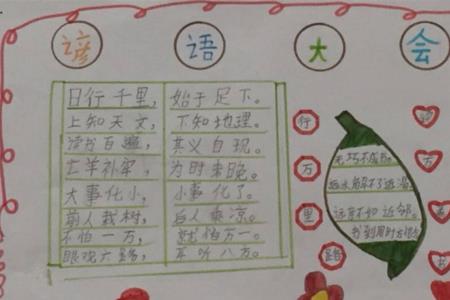 谚语大会
日行千里，始于足下。
上知天文，下知地理。
读书百遍，其义自现。
亡羊补牢，为时未晚。
大事化小，小事化了。
前人栽树，后人乘凉。
不怕一万，就怕万一。
眼观六路，耳听八方。
行万里路
读万
书
无巧不成书。
远水解不了近渴，
远亲不如近邻。